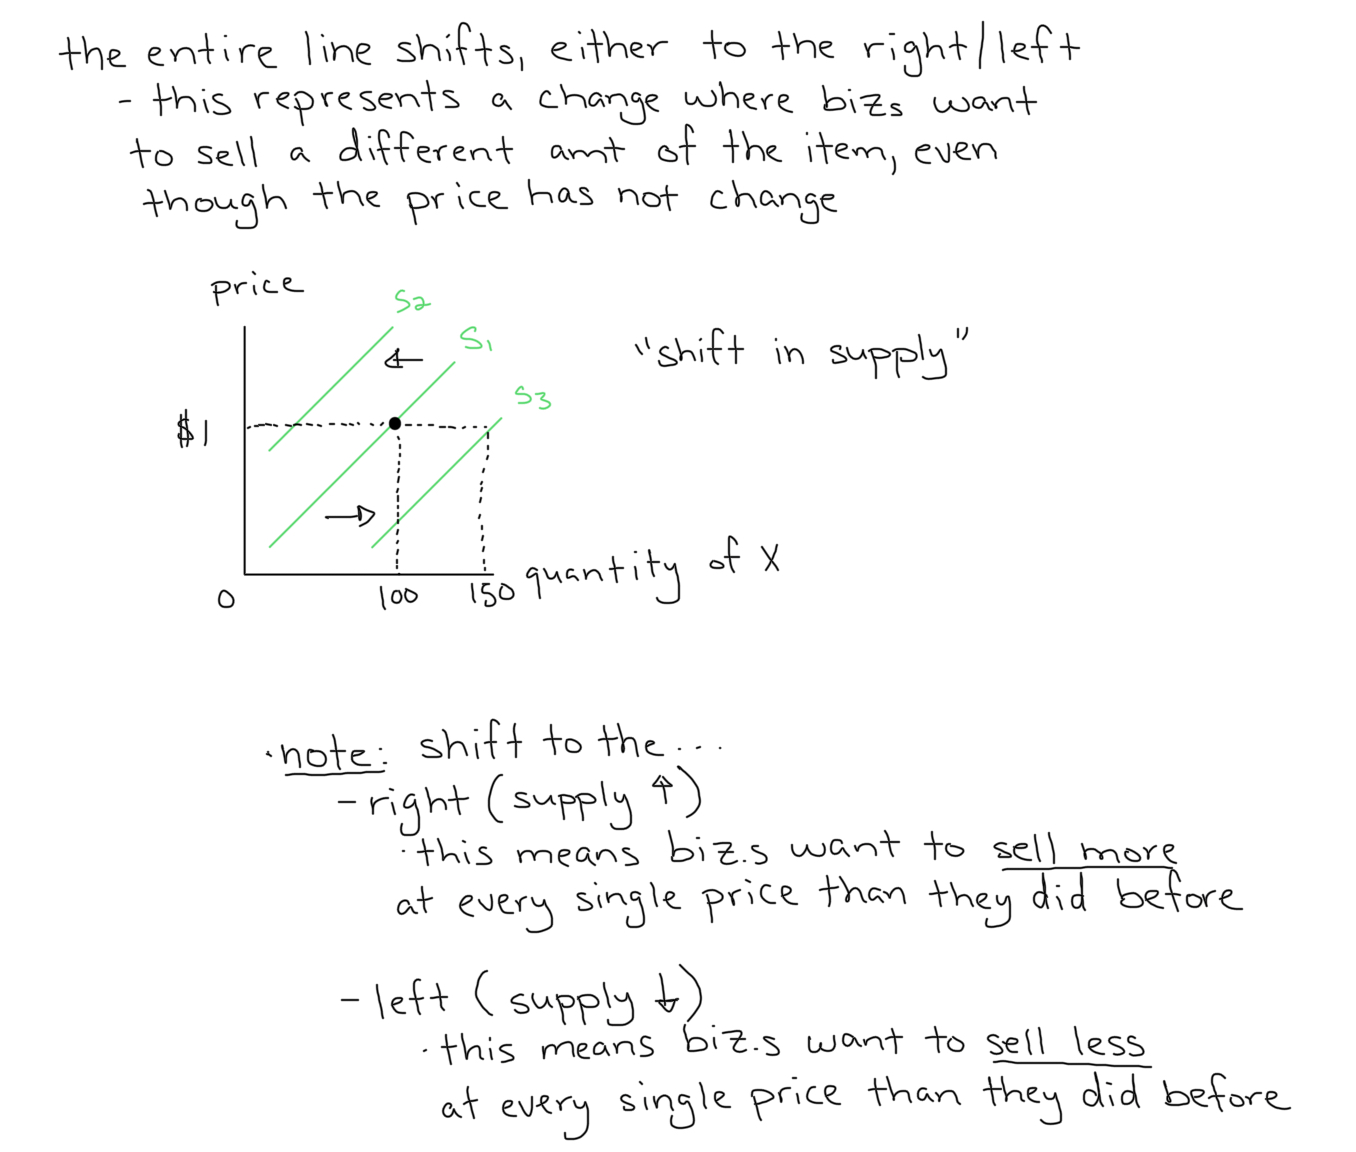 the entire line shifts, either to the right/left
- this represents a change where bizs want
to sell a different amt of the item, even
though the price has not change
price
S2
S1
S3
"shift in supply"
$1
0
100
150
quantity of X
·note: shift to the...
- right (supply ↑)
·this means biz.s want to sell more
at every single price than they did before
- left (supply ↓)
·this means biz.s want to sell less
at every single price than they did before